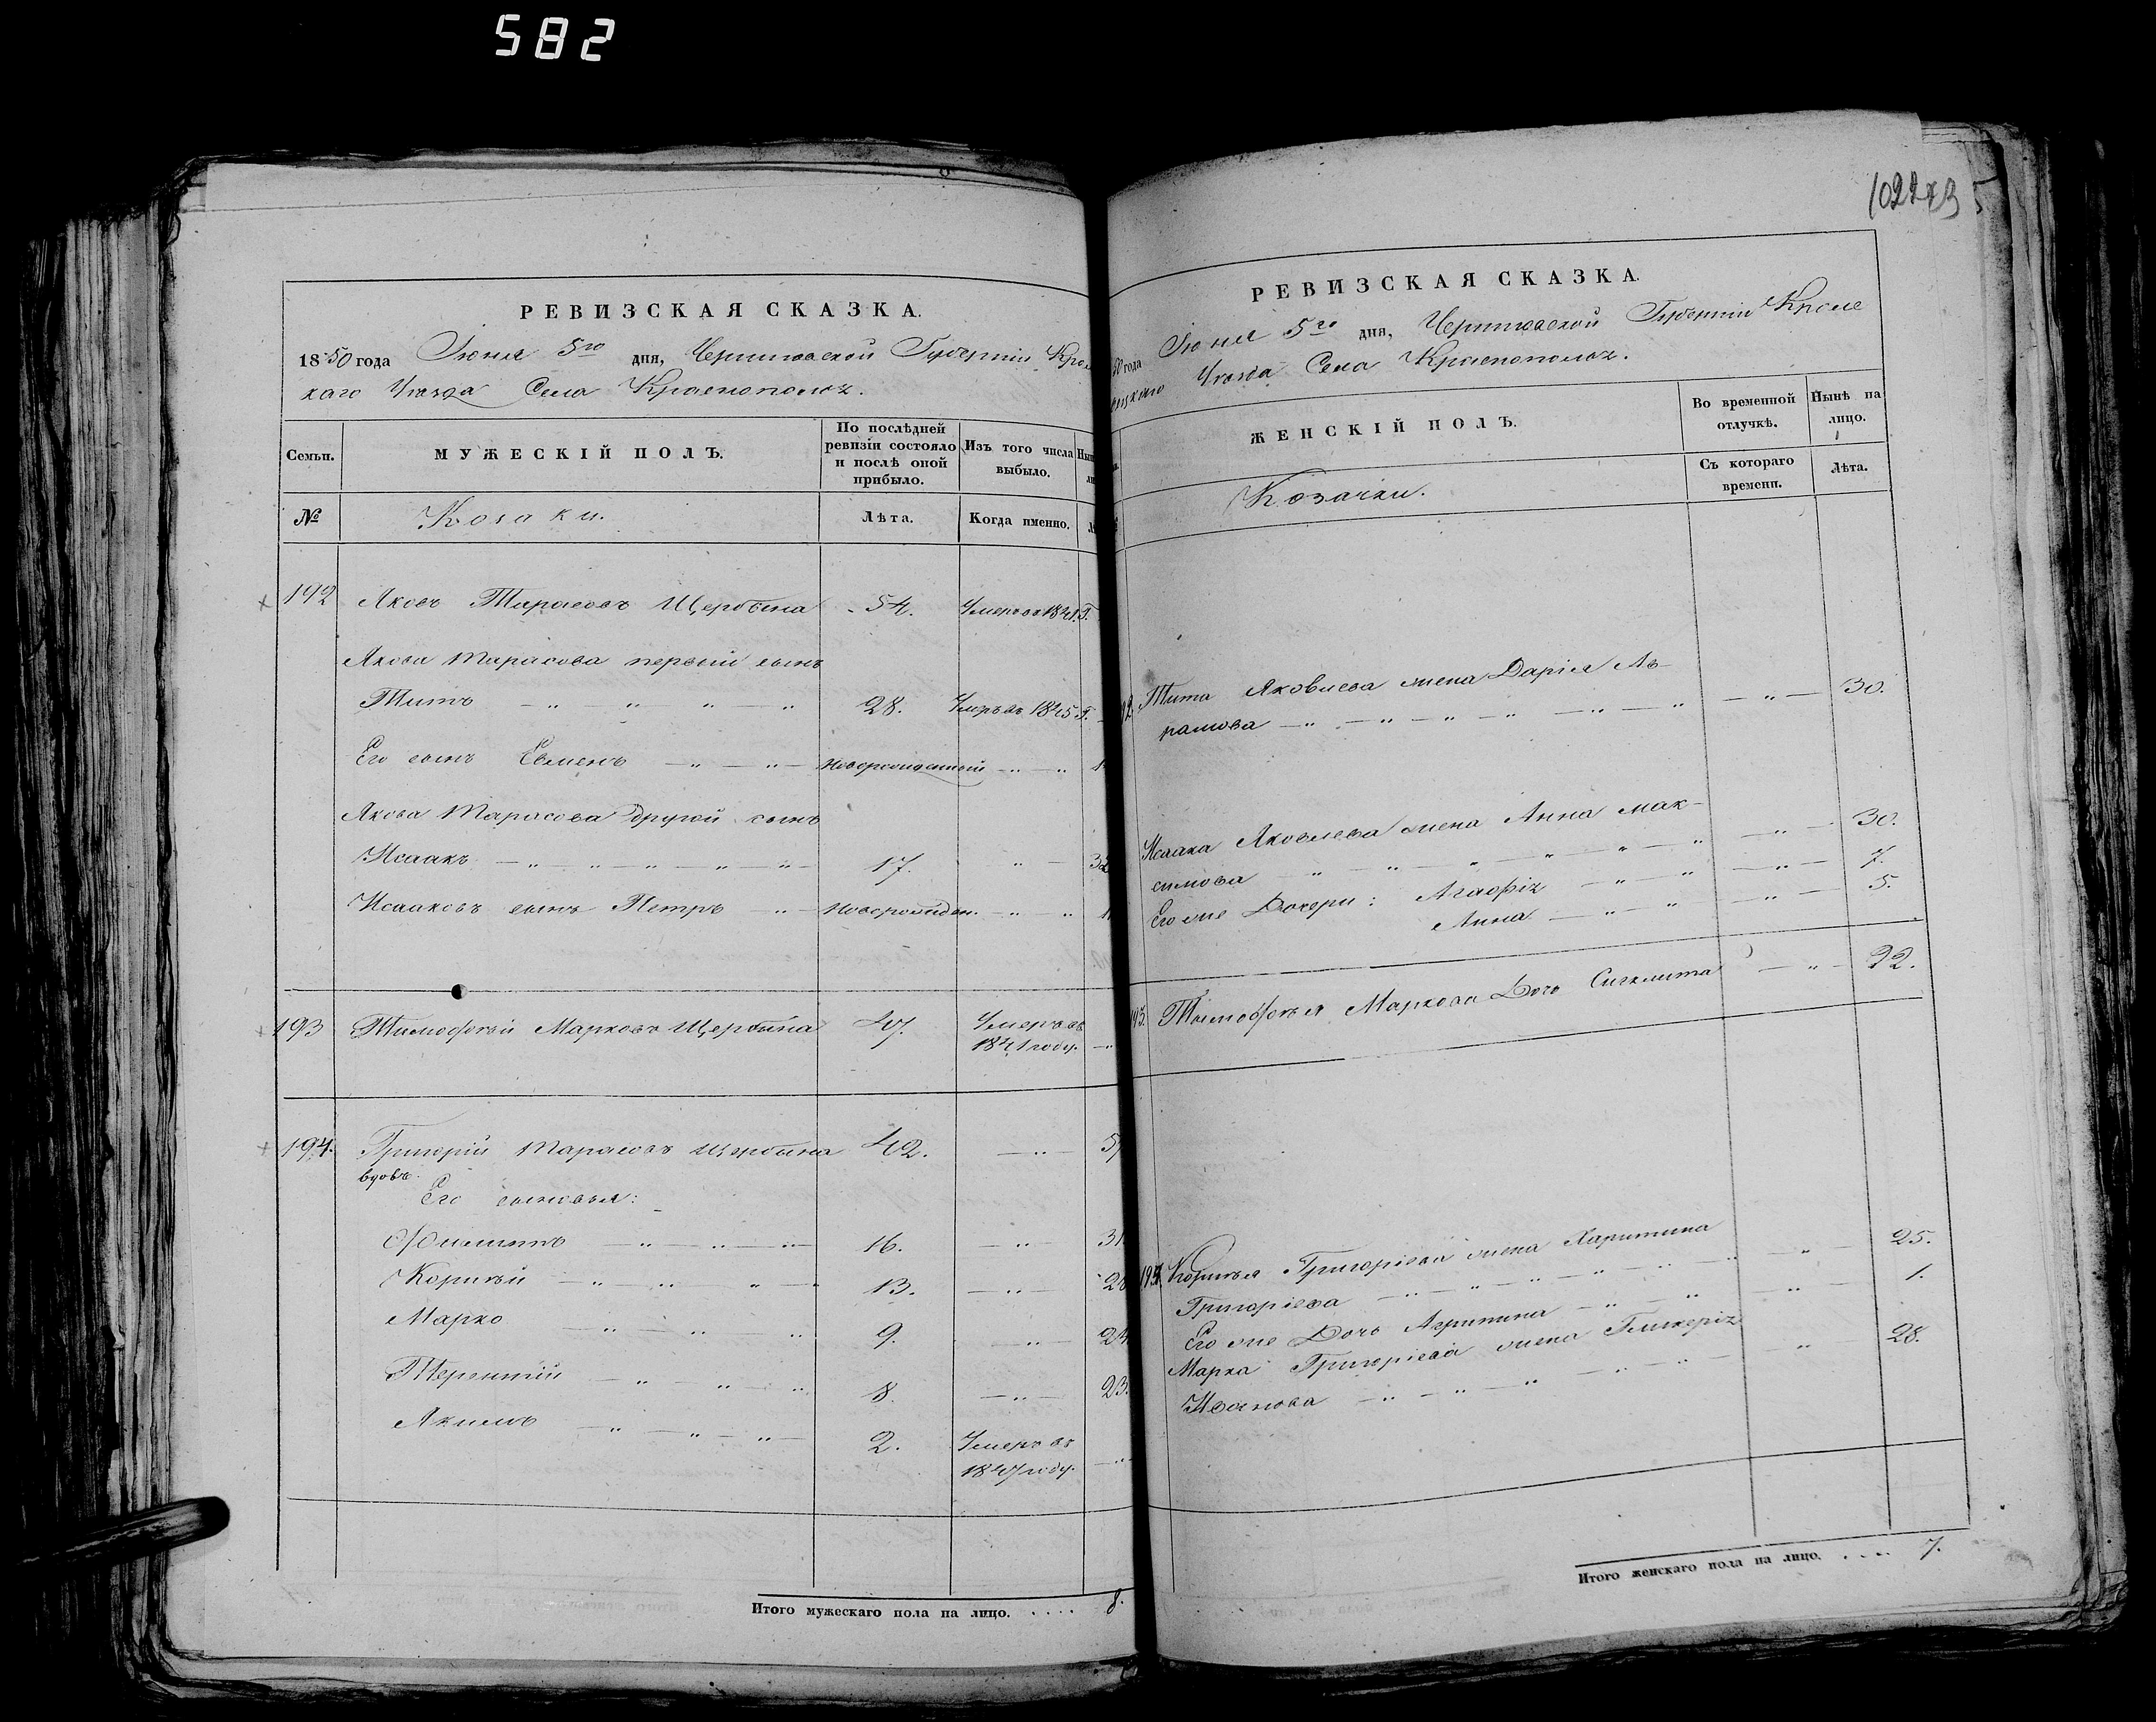 582
РЕВИЗСКАЯ СКАЗКА.
1850 года Іюня 5го дня, Черниговской Губерніи Крол
каго Уѣзда Села Краснополья.
Семьи.
МУЖЕСКІЙ ПОЛЪ.
По послѣдней ревизіи состояло и послѣ оной прибыло.
Изъ того числа выбыло.
№
Козаки.
Лѣта.
Когда именно.
192 Яковъ Тарасовъ Щербина 54. Умеръ въ 1841. Г.
Якова Тарасова первый сынъ
Титъ 28. Умръ въ 1845. Г.
Его сынъ Семенъ новорожденный
Якова Тарасова другой сынъ
Исаакъ 17. 32
Исааковъ сынъ Петръ новорожден.
193 Тимофѣй Марковъ Щербина 47. Умеръ въ
1841 году.
194. Григорій Тарасовъ Щербина 42.
вдовъ.
Его сыновья:
Филиппъ 16. 31.
Корнѣй 13. 28
Марко 9. 24
Терентій 8. 23.
Акимъ 2. Умеръ въ
1847 году.
Итого мужескаго пола на лицо. .... 8.
РЕВИЗСКАЯ СКАЗКА.
50 года Іюня 5го дня, Черниговской Губерніи Кроле
вецкаго Уѣзда Села Краснополья.
ЖЕНСКІЙ ПОЛЪ.
Во временной отлучкѣ.
Нынѣ на лицо.
Съ котораго времени.
Лѣта.
Козачки.
Тита Яковлева жена Дарія Ав-
рамова 30.
Исаака Яковлева жена Анна Мак-
симова 30.
Его же Дочери: Агафія 7.
Анна 5.
193. Тимофѣя Маркова Дочь Сигклита 22.
194 Корнѣя Григоріева жена Харитина
Григоріева 25.
Его же Дочь Агрипина 1.
Марка Григоріева жена Гликерія
Иванова 28.
Итого женскаго пола на лицо. .... 7.